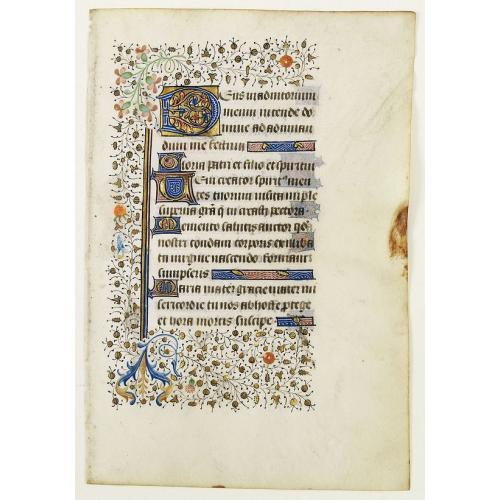 Deus in adiutorium
meum intende do
mine ad adiuuan
dum me festina
Gloria patri et filio et spiritui
Veni creator spiritus men
tes tuorum uisita imple
superna grã q̃ tu creasti pectora
Memento salutis auctor qd̃
nostri quondam corporis ex illiba
ta uirgine nascendo formam
sumpseris
Maria mater gracie mater mi
sericordie tu nos ab hoste ꝓtege
et hora mortis suscipe